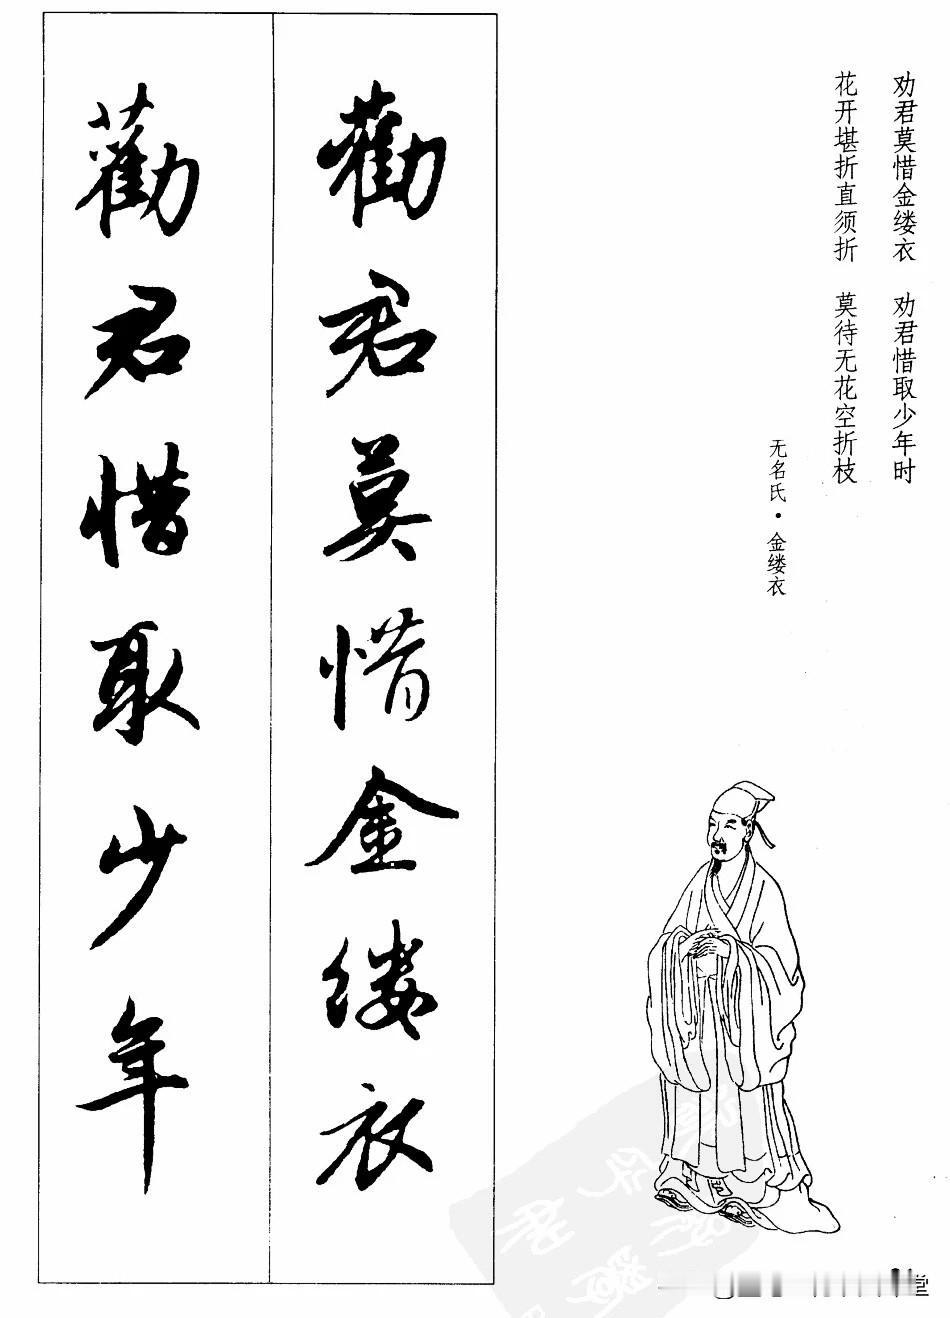 劝君莫惜金缕衣　劝君惜取少年时
花开堪折直须折　莫待无花空折枝
无名氏·金缕衣
勸君莫惜金缕衣
勸君惜取少年
堂